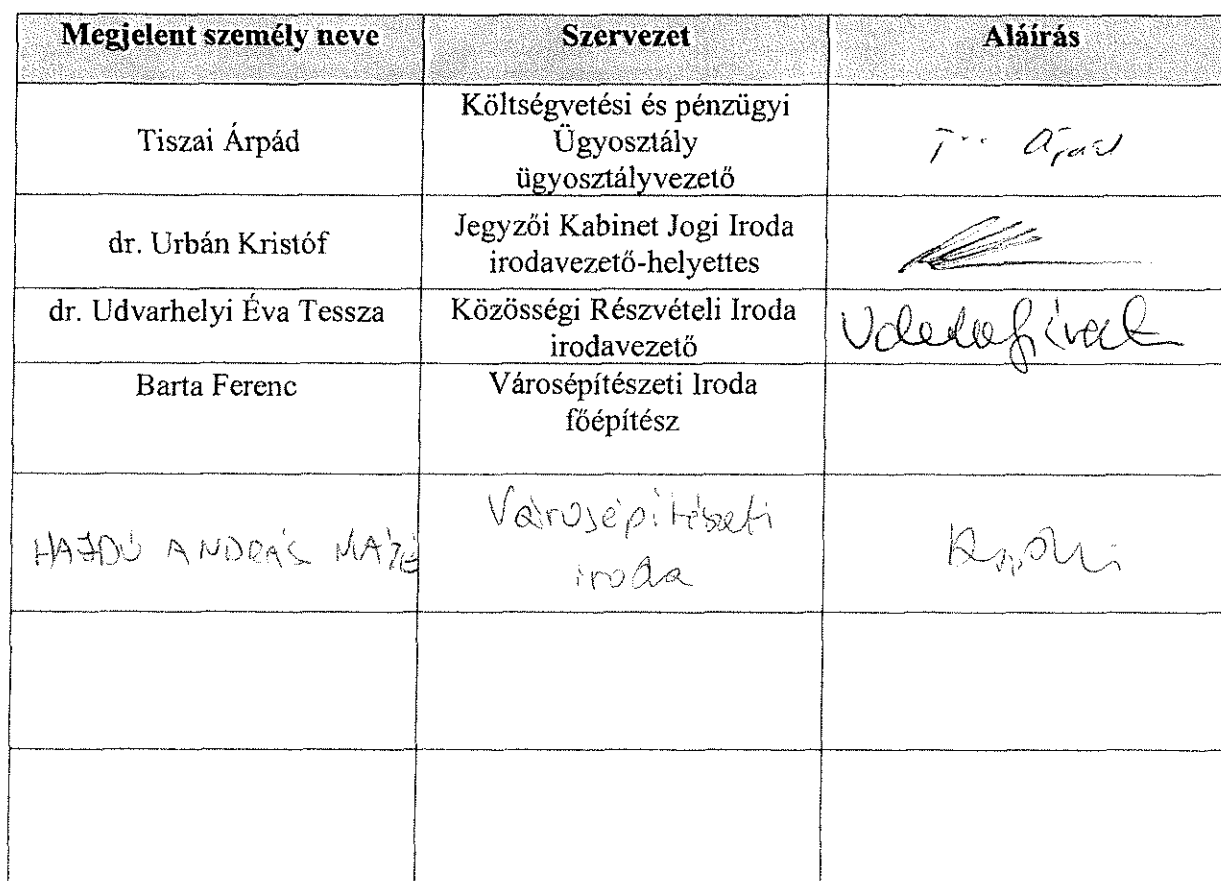 Megjelent személy neve Szervezet Aláírás
Tiszai Árpád
Költségvetési és pénzügyi
Ügyosztály
ügyosztályvezető
dr. Urbán Kristóf
Jegyzői Kabinet Jogi Iroda
irodavezető-helyettes
dr. Udvarhelyi Éva Tessza
Közösségi Részvételi Iroda
irodavezető
Barta Ferenc
Városépítészeti Iroda
főépítész
HAJDÚ ANDRÁS MÁTÉ
Városépítészeti
iroda